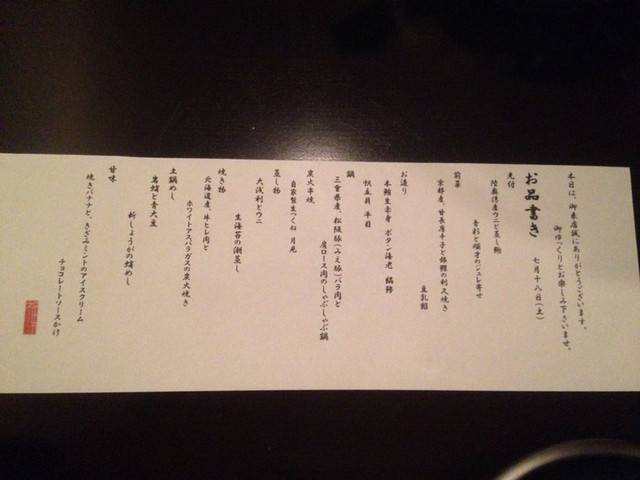 本日は、御来店誠にありがとうございます。
御ゆっくりとお楽しみ下さいませ。
お品書き 七月十八日（土）
先付
陸奥湾産ウニと蒸し鮑
青杉と順才のジュレ寄せ
前菜
京都産、甘長唐辛子と鱧の利久焼き
豆乳餡
お造り
本鮪生赤身 ボタン海老 縞鯵
帆立貝 平目
鍋
三重県産、松阪豚（みえ豚）バラ肉と
肩ロース肉のしゃぶしゃぶ鍋
炭火串焼
自家製生つくね 月見
蒸し物
大浅利とウニ
生海苔の潮蒸し
焼き物
北海道産、牛ヒレ肉と
ホワイトアスパラガスの炭火焼き
土鍋めし
真蛸と青大豆
新しょうがの蛸めし
甘味
焼きバナナと、きざみミントのアイスクリーム
チョコレートソースかけ